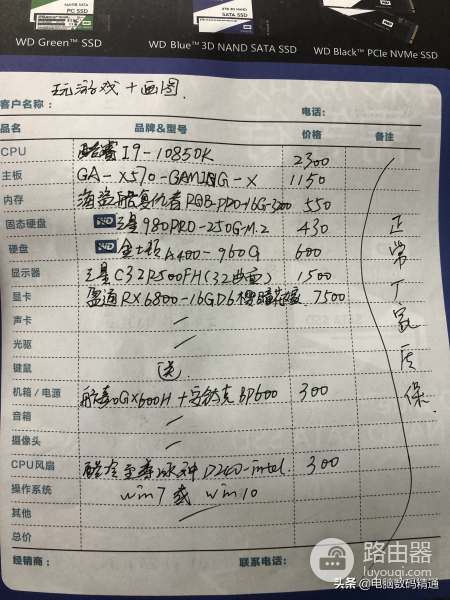 WD Green™ SSD WD Blue™ 3D NAND SATA SSD WD Black™ PCIe NVMe SSD
玩游戏+画图.
客户名称： 电话：
品名 品牌&型号 价格 备注
CPU 酷睿 I9-10850K 2300
主板 GA-X570-GAMING-X 1150
内存 海盗船复仇者RGB-PRO-16G-3200 550
固态硬盘 WD 三星980PRO-250G-M.2 430
硬盘 WD 金士顿A400-960G 600
显示器 三星C32R500FH(32曲面) 1500
显卡 盈通RX6800-16GD6樱瞳花嫁 7500
声卡
光驱
键鼠 送
机箱/电源 航嘉GX600H+安钛克BP600 300
音箱
摄像头
CPU风扇 酷冷至尊冰神D240-intel 300
操作系统 win7或win10
其他
总价
正常厂家质保.
经销商： 联系电话：
路由器
luyouqi.com
头条@电脑数码精通